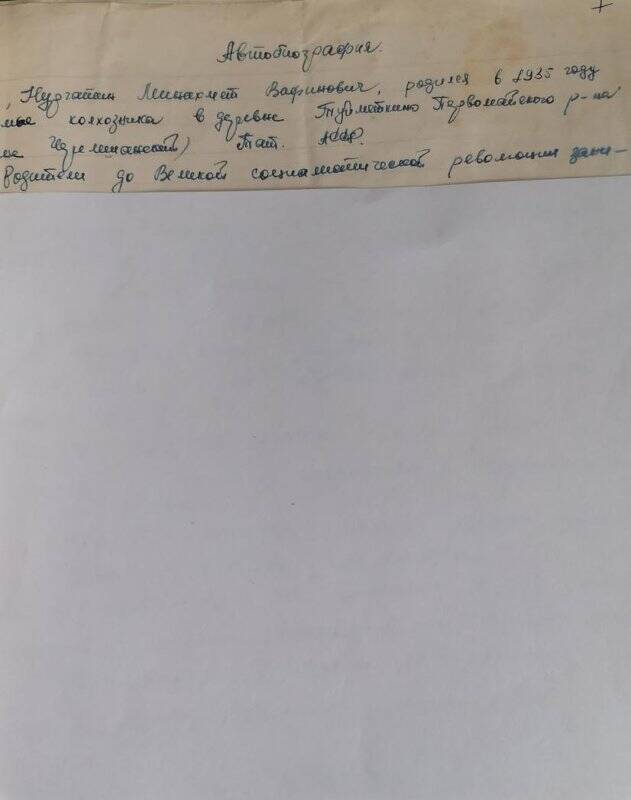 Автобиография.
, Нургатин Минахмет Вафинович, родился в 1935 году
мье колхозника в деревне Тудметкино Первомайского р-на
не Черемшанский) Тат. АССР.
родители до Великой социалистической революции зани-